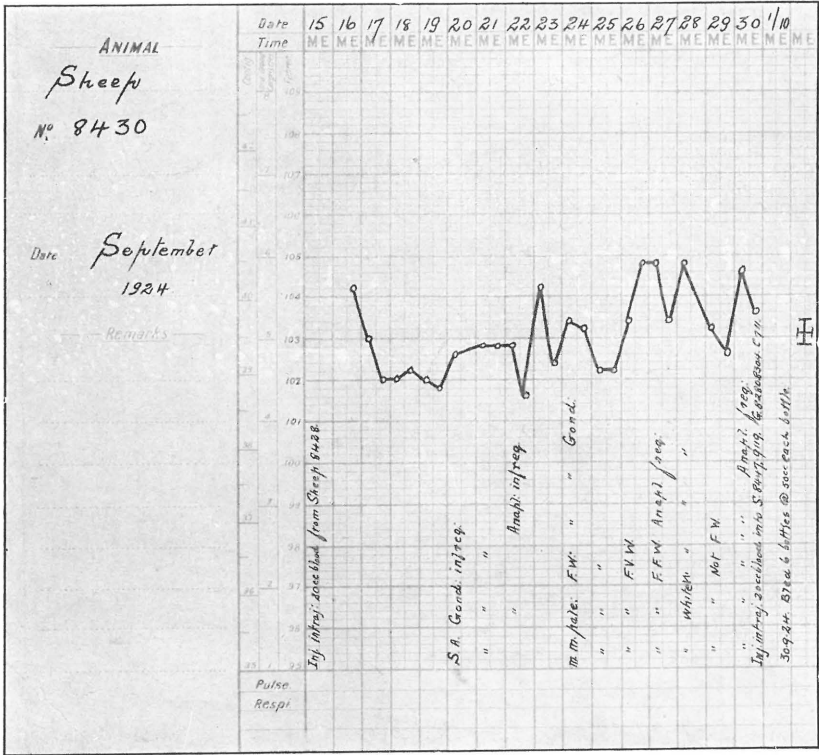 ANIMAL
Sheep
Nº 8430
Date September
1924
Remarks
Date 15 16 17 18 19 20 21 22 23 24 25 26 27 28 29 30 1/10
Time M E M E M E M E M E M E M E M E M E M E M E M E M E M E M E M E M E M E
108
107
106
105
104
103
102
101
100
99
98
97
96
95
Inj. intraj: 20cc blood from Sheep 8428.
S.A. Gond: infreq:
" "
" Anapl: infreq
m.m. pale: F.W. " " Gond:
" "
" F.V.W.
" F.F.W. Anapl freq:
" Whitish " " "
" Not F.W.
" " " " Anapl. freq:
Inj. intraj. 20cc blood into S.
30.9.24. Bled 6 bottles @ 500cc each bottle.
Pulse
Resp: